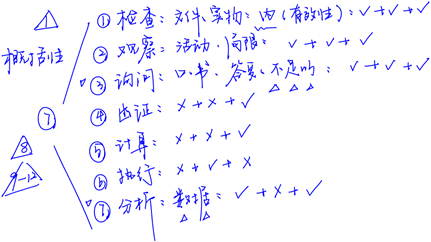 △1
概括性
⑦
△8
△9-12
① 检查：文件、实物：内（有效性）：✓+✓+✓
② 观察：活动、局限：✓+✓+✓
③ 询问：口、书、答复、不足以：✓+✓+✓
④ 函证：×+×+✓
⑤ 计算：×+×+✓
⑥ 执行：×+✓+×
⑦ 分析：数据：✓+×+✓